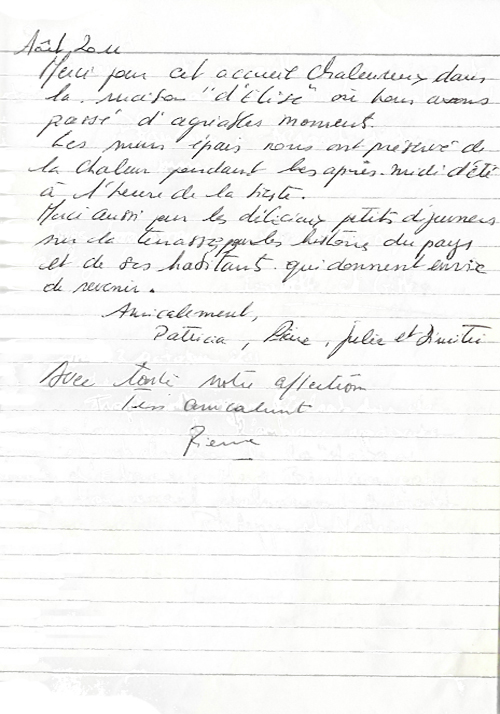 Août 2011
Merci pour cet accueil chaleureux dans
la maison "d'Elise" où nous avons
passé d'agréables moment.
Les murs épais nous ont préservé de
la chaleur pendant les après-midi d'été
à l'heure de la sieste.
Merci aussi pour les délicieux petits déjeuners
sur la terrasse, pour les histoires du pays
et de ses habitant qui donnent envie
de revenir.
Amicalement,
Patricia, Julie et Dimitri
Avec toute notre affection
Très amicalement
Pierre